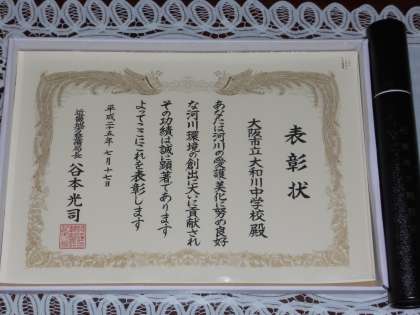 表彰状
大阪市立 大和川中学校 殿
あなたは河川の愛護美化に努め良好
な河川環境の創出に大いに貢献され
その功績は誠に顕著であります
よってここにこれを表彰します
平成二十五年 七月十七日
近畿地方整備局長 谷本光司